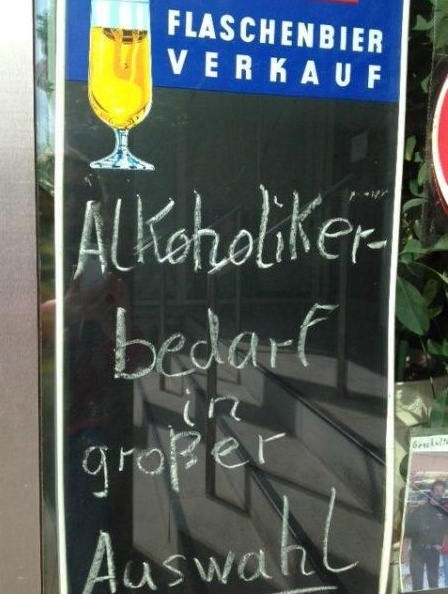 FLASCHENBIER
VERKAUF
Alkoholiker-
bedarf
in
großer
Auswahl